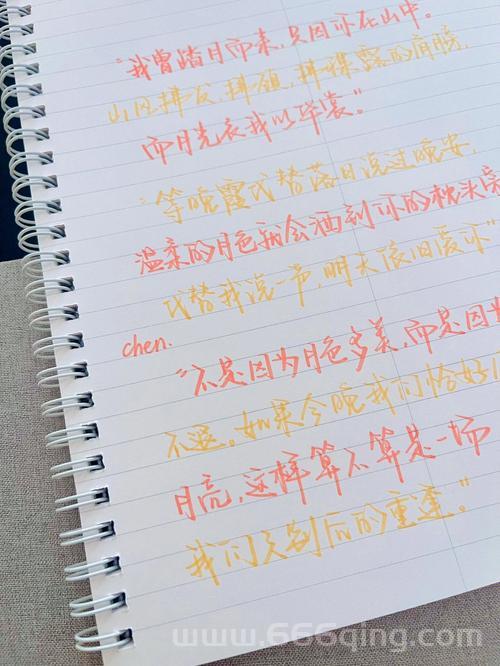 "我曾踏月而来,只因你在山中。
山风拂发,拂颈,拂裸露的肩膀,
而月光衣我以华裳。"
"等晚霞代替落日说过晚安,
温柔的月色就会洒到你的枕头旁
代替我说一声,明天依旧爱你"
chen.
"不是因为月色多美,而是因为
不退,如果今晚我们恰好
月亮,这样算不算是一场
我们久别后的重逢。"
www.666qing.com